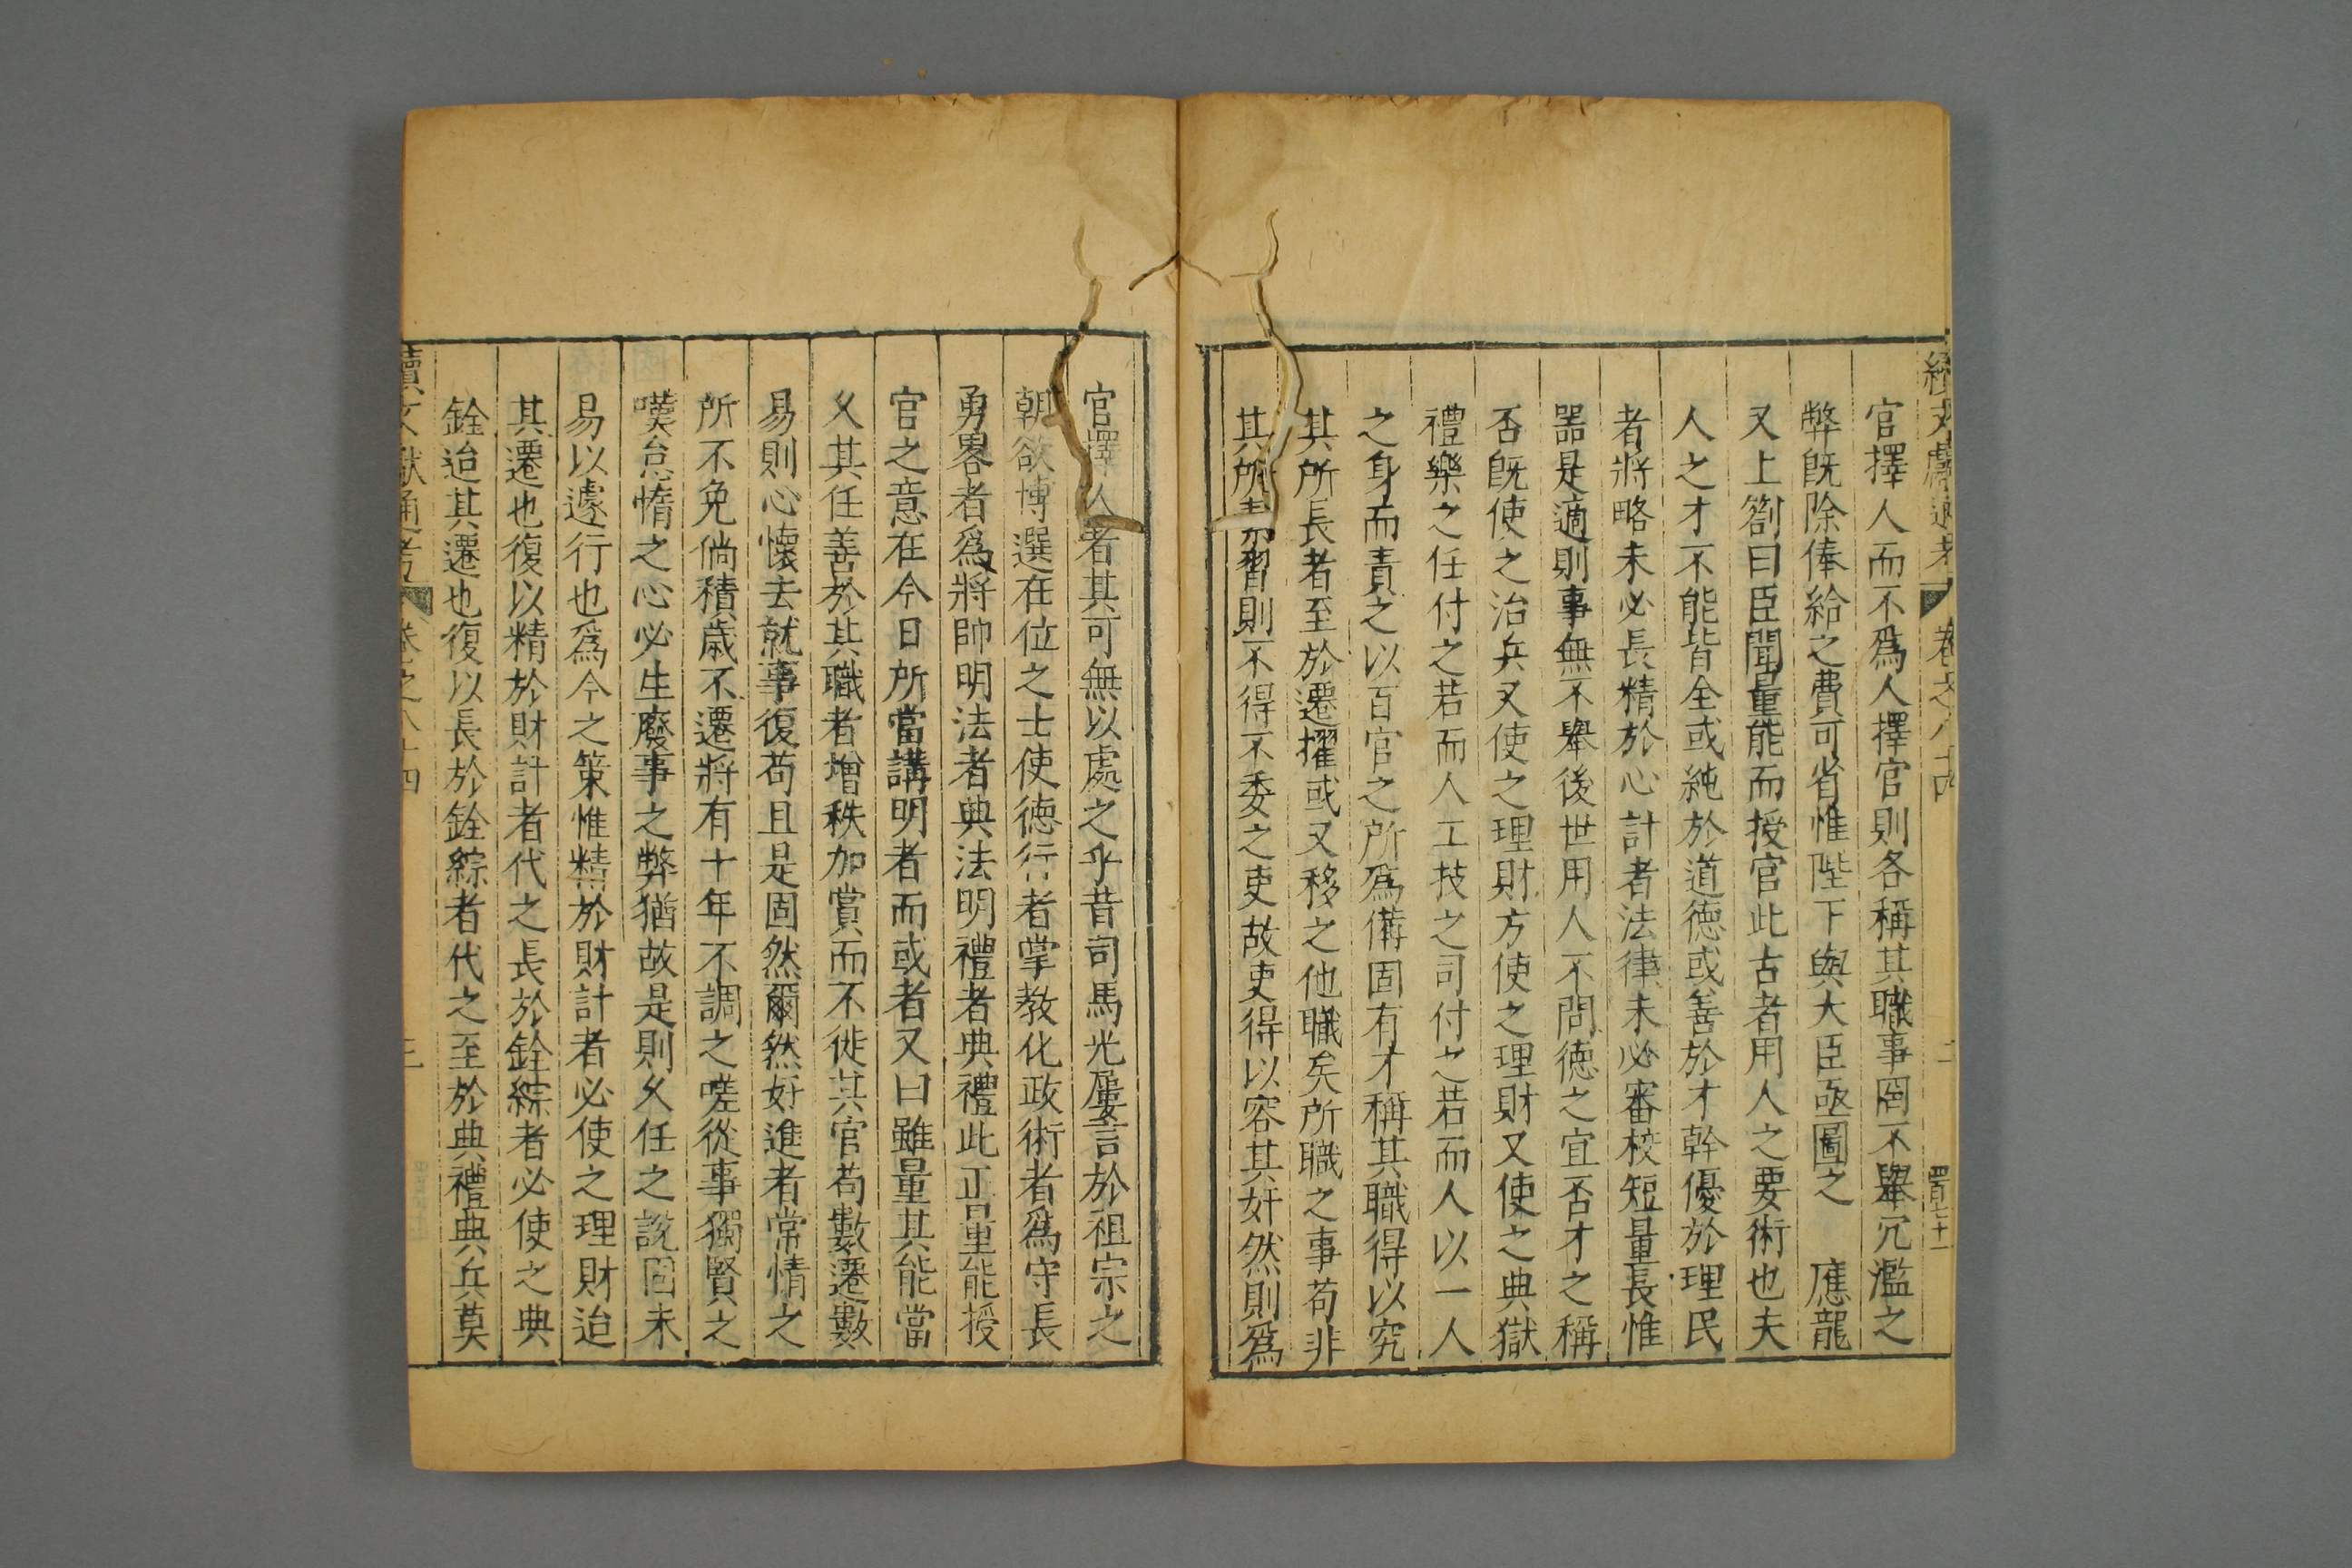 續文獻通考 卷之八十四 二
官擇人而不爲人擇官則各稱其職事罔不舉冗濫之
弊旣除俸給之費可省惟陛下與大臣亟圖之 應龍
又上劄曰臣聞量能而授官此古者用人之要術也夫
人之才不能皆全或純於道德或善於才幹優於理民
者將略未必長精於心計者法律未必審校短量長惟
噐是適則事無不舉後世用人不問德之宜否才之稱
否旣使之治兵又使之理財方使之理財又使之典獄
禮樂之任付之若而人工技之司付之若而人以一人
之身而責之以百官之所爲備固有才稱其職得以究
其所長者至於遷擢或又移之他職矣所職之事苟非
其所習則不得不委之吏故吏得以容其奸然則爲
官擇人者其可無以處之乎昔司馬光屢言於祖宗之
朝欲博選在位之士使德行者掌教化政術者爲守長
勇畧者爲將帥明法者典法明禮者典禮此正量能授
官之意在今日所當講明者而或者又曰雖量其能當
乆其任善於其職者增秩加賞而不徙其官苟數遷數
易則心懷去就事復苟且是固然爾然好進者常情之
所不免倘積歲不遷將有十年不調之嗟從事獨賢之
嘆怠惰之心必生廢事之弊猶故是則乆任之說固未
易以遽行也爲今之策惟精於財計者必使之理財迨
其遷也復以精於財計者代之長於銓綜者必使之典
銓迨其遷也復以長於銓綜者代之至於典禮典兵莫
續文獻通考 卷之八十四 三